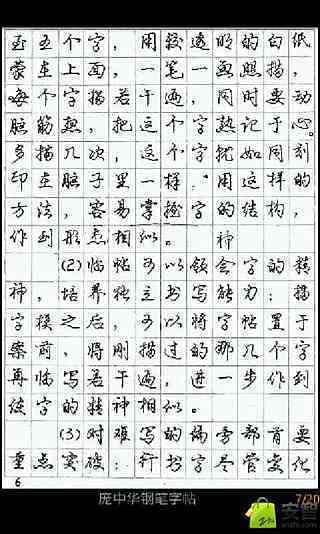 至五个字，用较透明的白纸
蒙在上面，一笔一画照描，
每个字描若干遍，同时要动
脑筋想，把这个字熟记于心。
多描几次，这个字就如同刻
印在脑子里一样，用这样的
方法，容易掌握字的结构，
作到形态相似。神
(2)临帖可以领会字的精
神，培养独立书写能力：描
字模之后，可以将字帖置于
案前，将刚描过的那几个字
再临写若干遍，进一步作到
使字的精神相似。
(3)对难写的偏旁部首要
重点突破：行书字尽管变化
6
庞中华钢笔字帖
7/20
安智